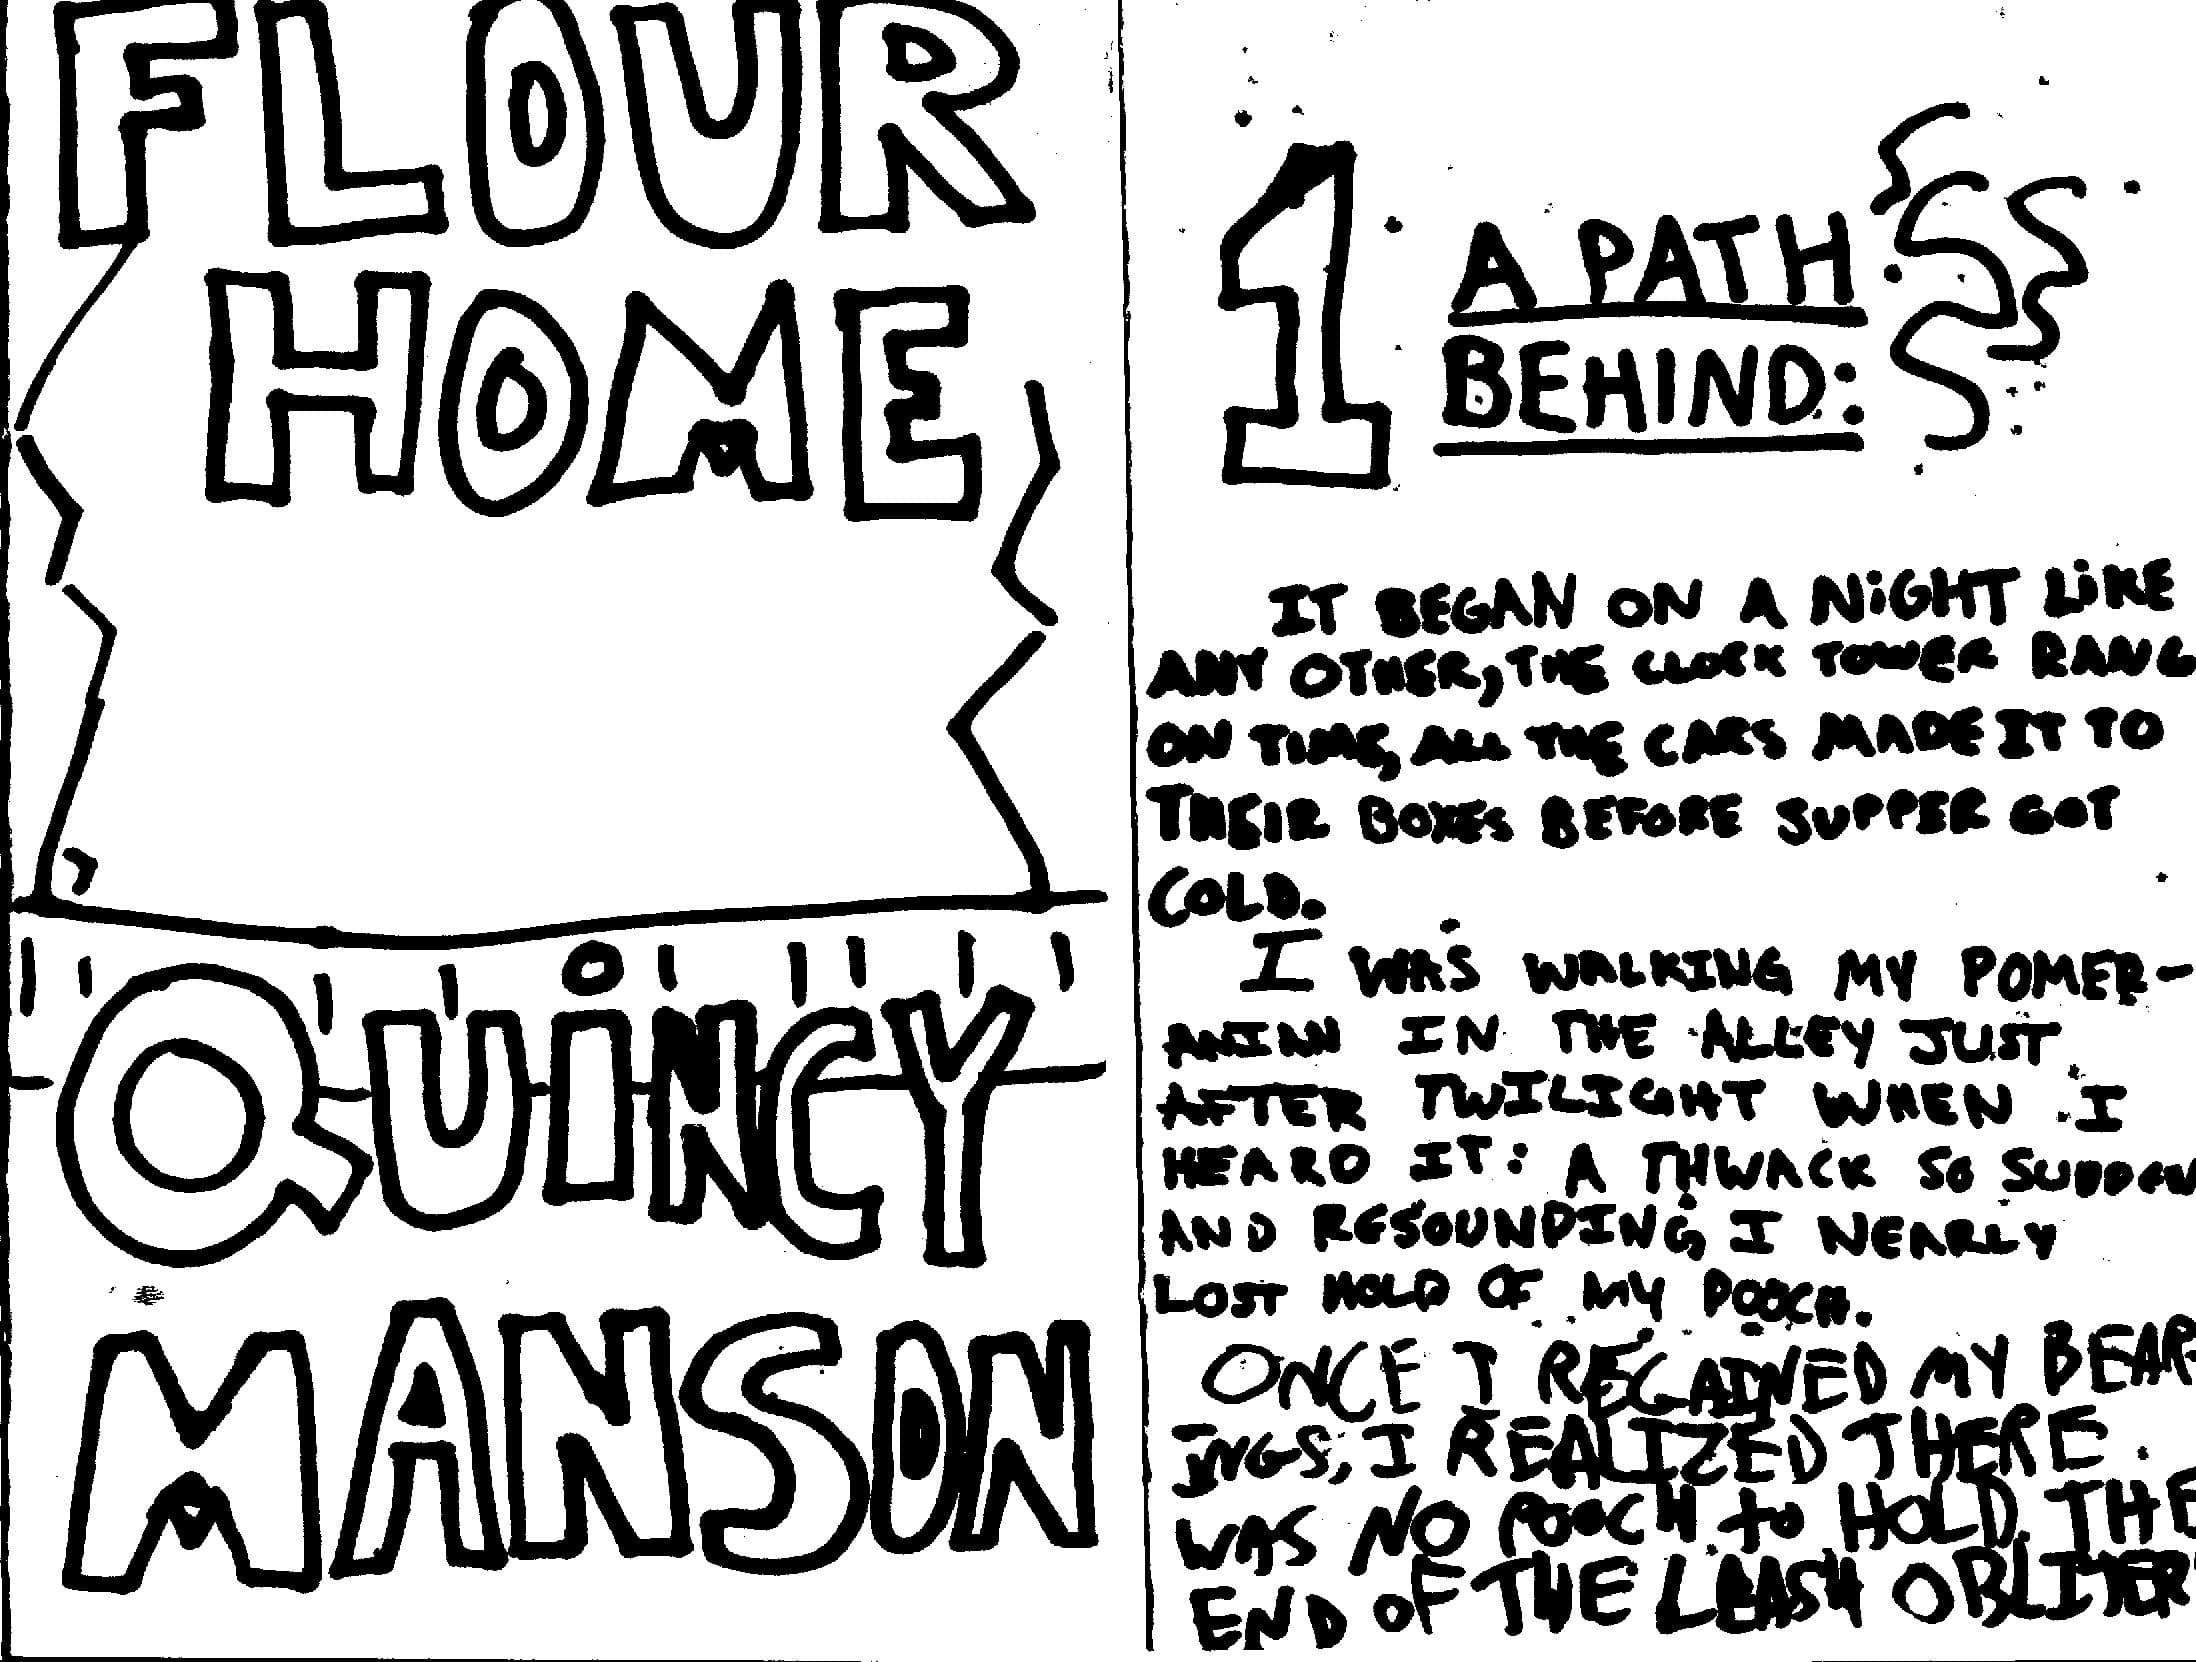 FLOUR
HOME
QUiNCY
MANSON
1
A PATH
BEHIND:
IT BEGAN ON A NiGHT LiKE
ANY OTHER, THE CLOCK TOWER RANG
ON TIME, ALL THE CARS MADE IT TO
THEIR BOXES BEFORE SUPPER GOT
COLD.
I WAS WALKING MY POMER-
ANIAN IN THE ALLEY JUST
AFTER TWILIGHT WHEN I
HEARD IT: A THWACK SO SUDDEN
AND RESOUNDING, I NEARLY
LOST HOLD OF MY POOCH.
ONCE I REGAINED MY BEAR-
INGS, I REALIZED THERE
WAS NO POOCH to HOLD. THE
END OF THE LEASH OBLITER